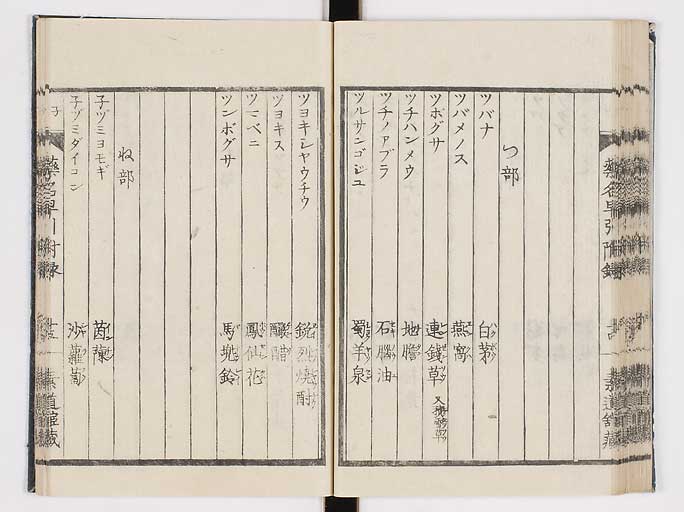 つ部
ツバナ 白茅
ツバメノス 燕窩
ツボグサ 連錢草
ツチハンメウ 地膽
ツチノアブラ 石腦油
ツルサンゴジユ 蜀羊泉
ツヨキシヤウチウ 銳烈燒酎
ツヨキス 釅醋
ツマベニ 鳳仙花
ツンボグサ 馬兜鈴
ね部
子ヅミヨモギ 茵蔯
子ヅミダイコン 沙蘿蔔
藥名早引附錄